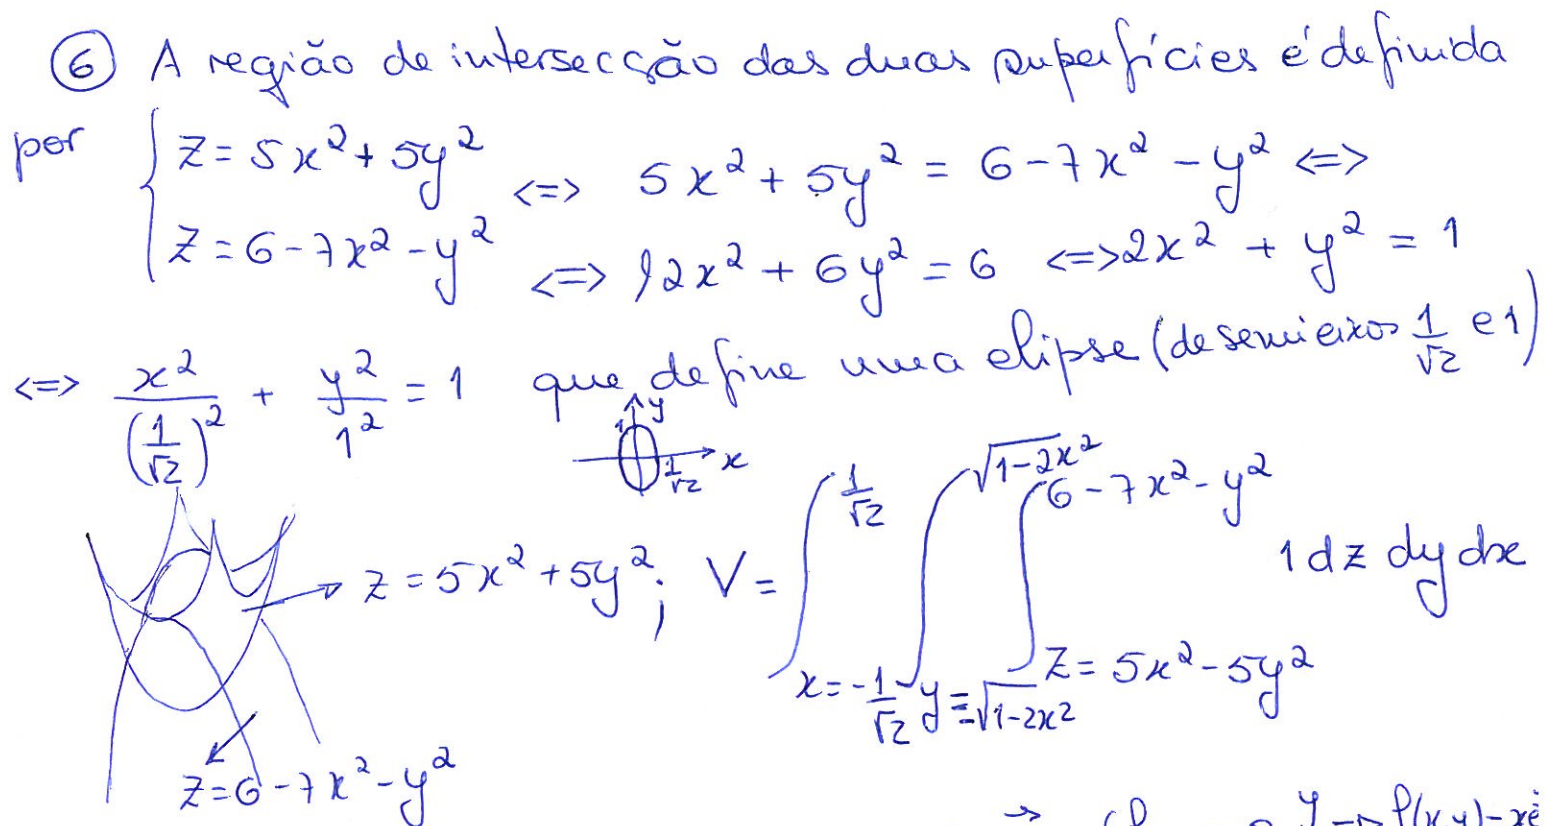 ⑥ A região de intersecção das duas superfícies é definida
por { z = 5x² + 5y² <=> 5x² + 5y² = 6 - 7x² - y² <=>
z = 6 - 7x² - y² <=> 12x² + 6y² = 6 <=> 2x² + y² = 1
<=> x²/(1/√2)² + y²/1² = 1 que define uma elipse (de semieixos 1/√2 e 1)
y
1
1/√2 x
z = 5x² + 5y²; V = ∫_{x=-1/√2}^{1/√2} ∫_{y=-√1-2x²}^{√1-2x²} ∫_{z=5x²-5y²}^{6-7x²-y²} 1 dz dy dx
z = 6 - 7x² - y²